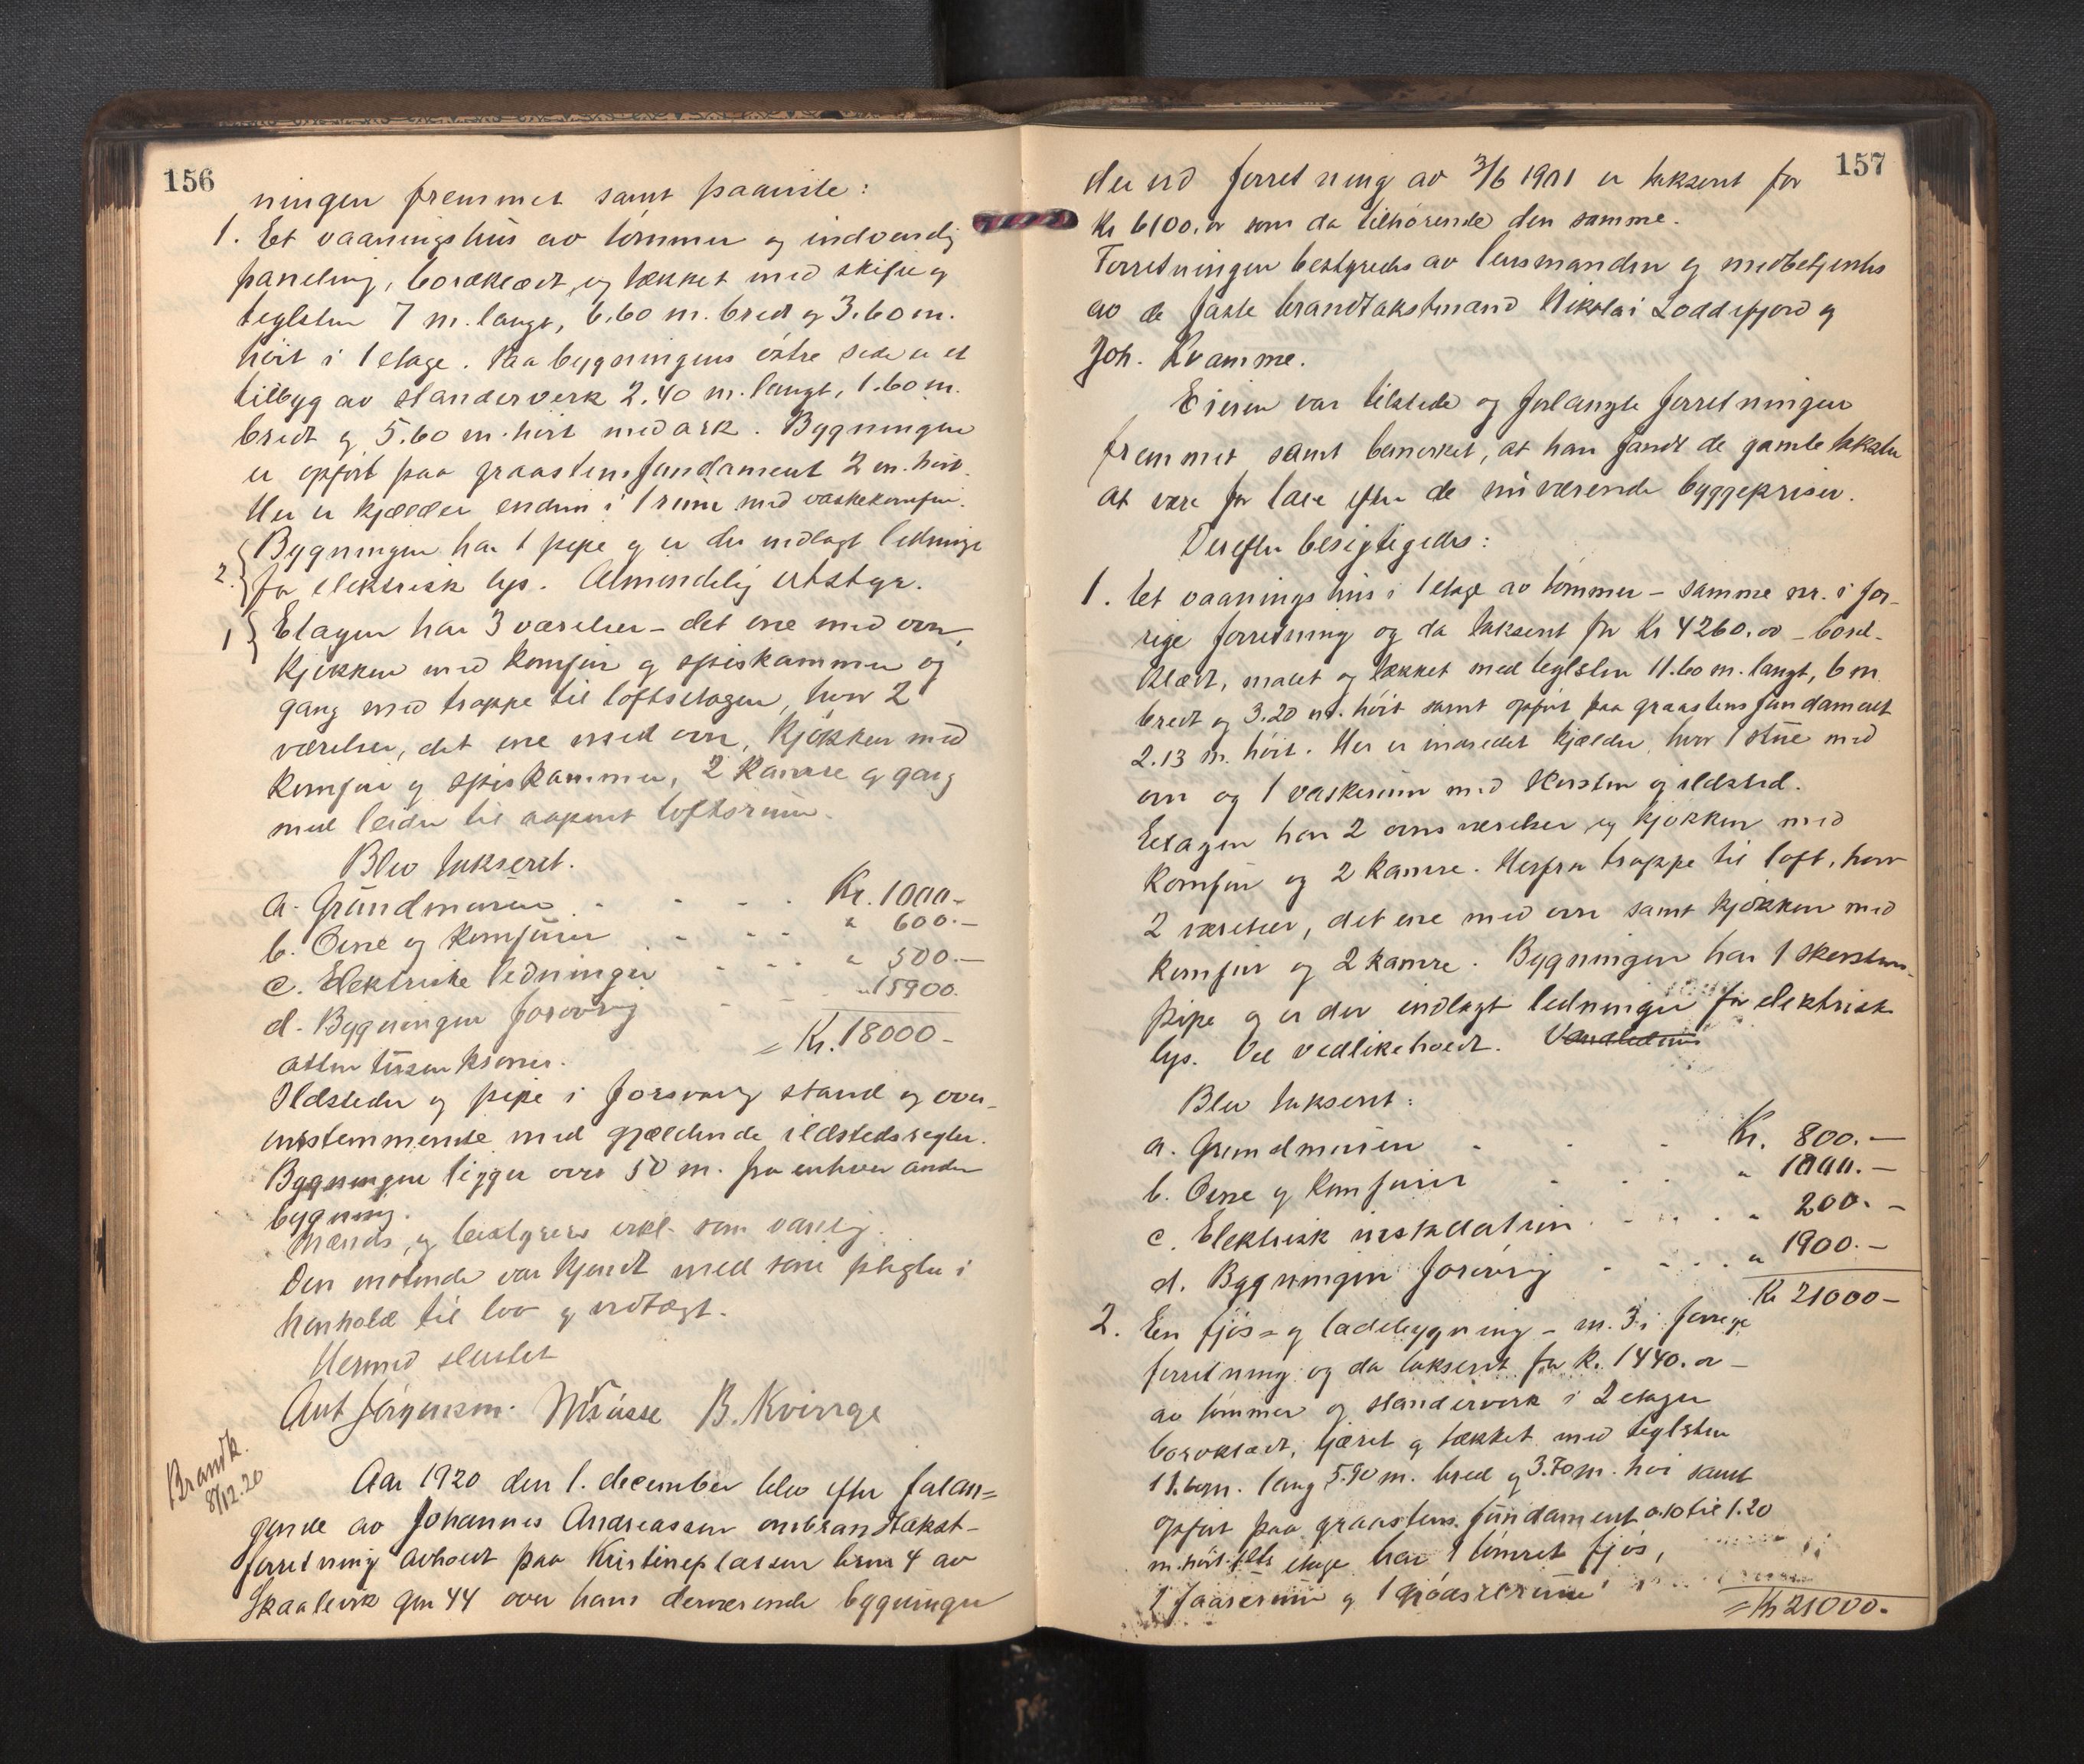 156
ningen fremmet samt paaviste:
1. Et vaaningshus av tømmer og indvendig
paneling, bordklædt og tækket med skifer og
teglsten 7 m. langt, 6.60 m. bredt og 3.60 m.
høit i 1 etage. Paa bygningens østre side er et
tilbyg av standerverk 2.40 m. langt, 1.60 m.
bredt og 5.60 m. høit med ark. Bygningen
er opført paa graastensfundament 2 m. høit.
Her er kjælder endvu i 1 rum med vaskekomfur.
2. Bygningen har 1 pipe og er der indlagt ledninger
for elektrisk lys. Almindelig utstyr.
1 Etagen har 3 værelser - det ene med ovn,
kjøkken med komfur og spiskammer og
gang med trappe til loftsetagen, hvor 2
værelser, det ene med ovn, kjøkken med
komfur og spiskammer, 2 kamre og gang
med leider til aapent loftsrum.
Blev taksert.
a. Grundmuren . - - - . Kr. 1000.-
b. Ovne og komfurer . - - - " 600.-
c. Elektriske ledninger - - - " 500.-
d. Bygningen forøvrig - - - " 15900.
atten tusen kroner. = Kr. 18000-
Ildsteder og pipe i forsvarlig stand og over-
ensstemmende med gjældende ildstedsregler.
Bygningen ligger over 50 m. fra enhver anden
bygning.
Mænds og bestyrers erkl. som vanlig.
Den møtende var kjendt med sine pligter i
henhold til lov og vedtægt.
Hermed sluttet
Ant Jørgensen. B. Kvinge
Brandk.
8/12.20
Aar 1920 den 1. december blev efter forlan=
gende av Johannes Andreassen ombrandtakst-
forretning avholdt paa Kristineplassen brnr 4 av
Skaalevik gnr 44 over hans derværende bygninger
157
der ved forretning av 3/6 1911 er taksert for
Kr 6100.00 som da tilhørende den samme.
Forretningen bestyredes av lensmanden og medbetjentes
av de faste brandtakstmænd Nikolai Loddefjord og
Joh. Kvamme.
Eieren var tilstede og forlangte forretningen
fremmet samt bemerket, at han fandt de gamle takster
at være for lave efter de nuværende byggepriser.
Derefter besigtigedes:
1. Et vaaningshus i 1 etage av tømmer - samme nr. i for-
rige forretning og da taksert for Kr 4260.00 - bord-
klædt, malet og tækket med teglsten 11.60 m. langt, 6 m.
bredt og 3.20 m. høit samt opført paa graastensfundament
2.13 m. høit. Her er indredet kjælder, hvor 1 stue med
ovn og 1 vaskerum med skorsten og ildsted.
Etagen har 2 ovnsværelser og kjøkken med
komfur og 2 kamre. Herfra trappe til loft, hvor
2 værelser, det ene med ovn samt kjøkken med
komfur og 2 kamre. Bygningen har 1 skorstens-
pipe og er der indlagt ledninger for elektrisk
lys. Vel vedlikeholdt.
Blev taksert:
a. Grundmuren - - - Kr. 800.-
b. Ovne og komfurer - - - " 1000.-
c. Elektrisk installation - - - " 200.-
d. Bygningen forøvrig - - - " 1900.-
Kr 21000-
2. En fjøs= og ladebygning - nr. 3 i forrige
forretning og da taksert for Kr. 1440.00 -
av tømmer og standerverk i 2 etager
bordklædt, tjæret og tækket med teglsten
11.60m. lang 5.90 m. bred og 3.70 m. høi samt
opført paa graastens fundament 0.10 til 1.20
m. høit. etage har 1 tømret fjøs,
1 faarerum og 1
= Kr 21000.-